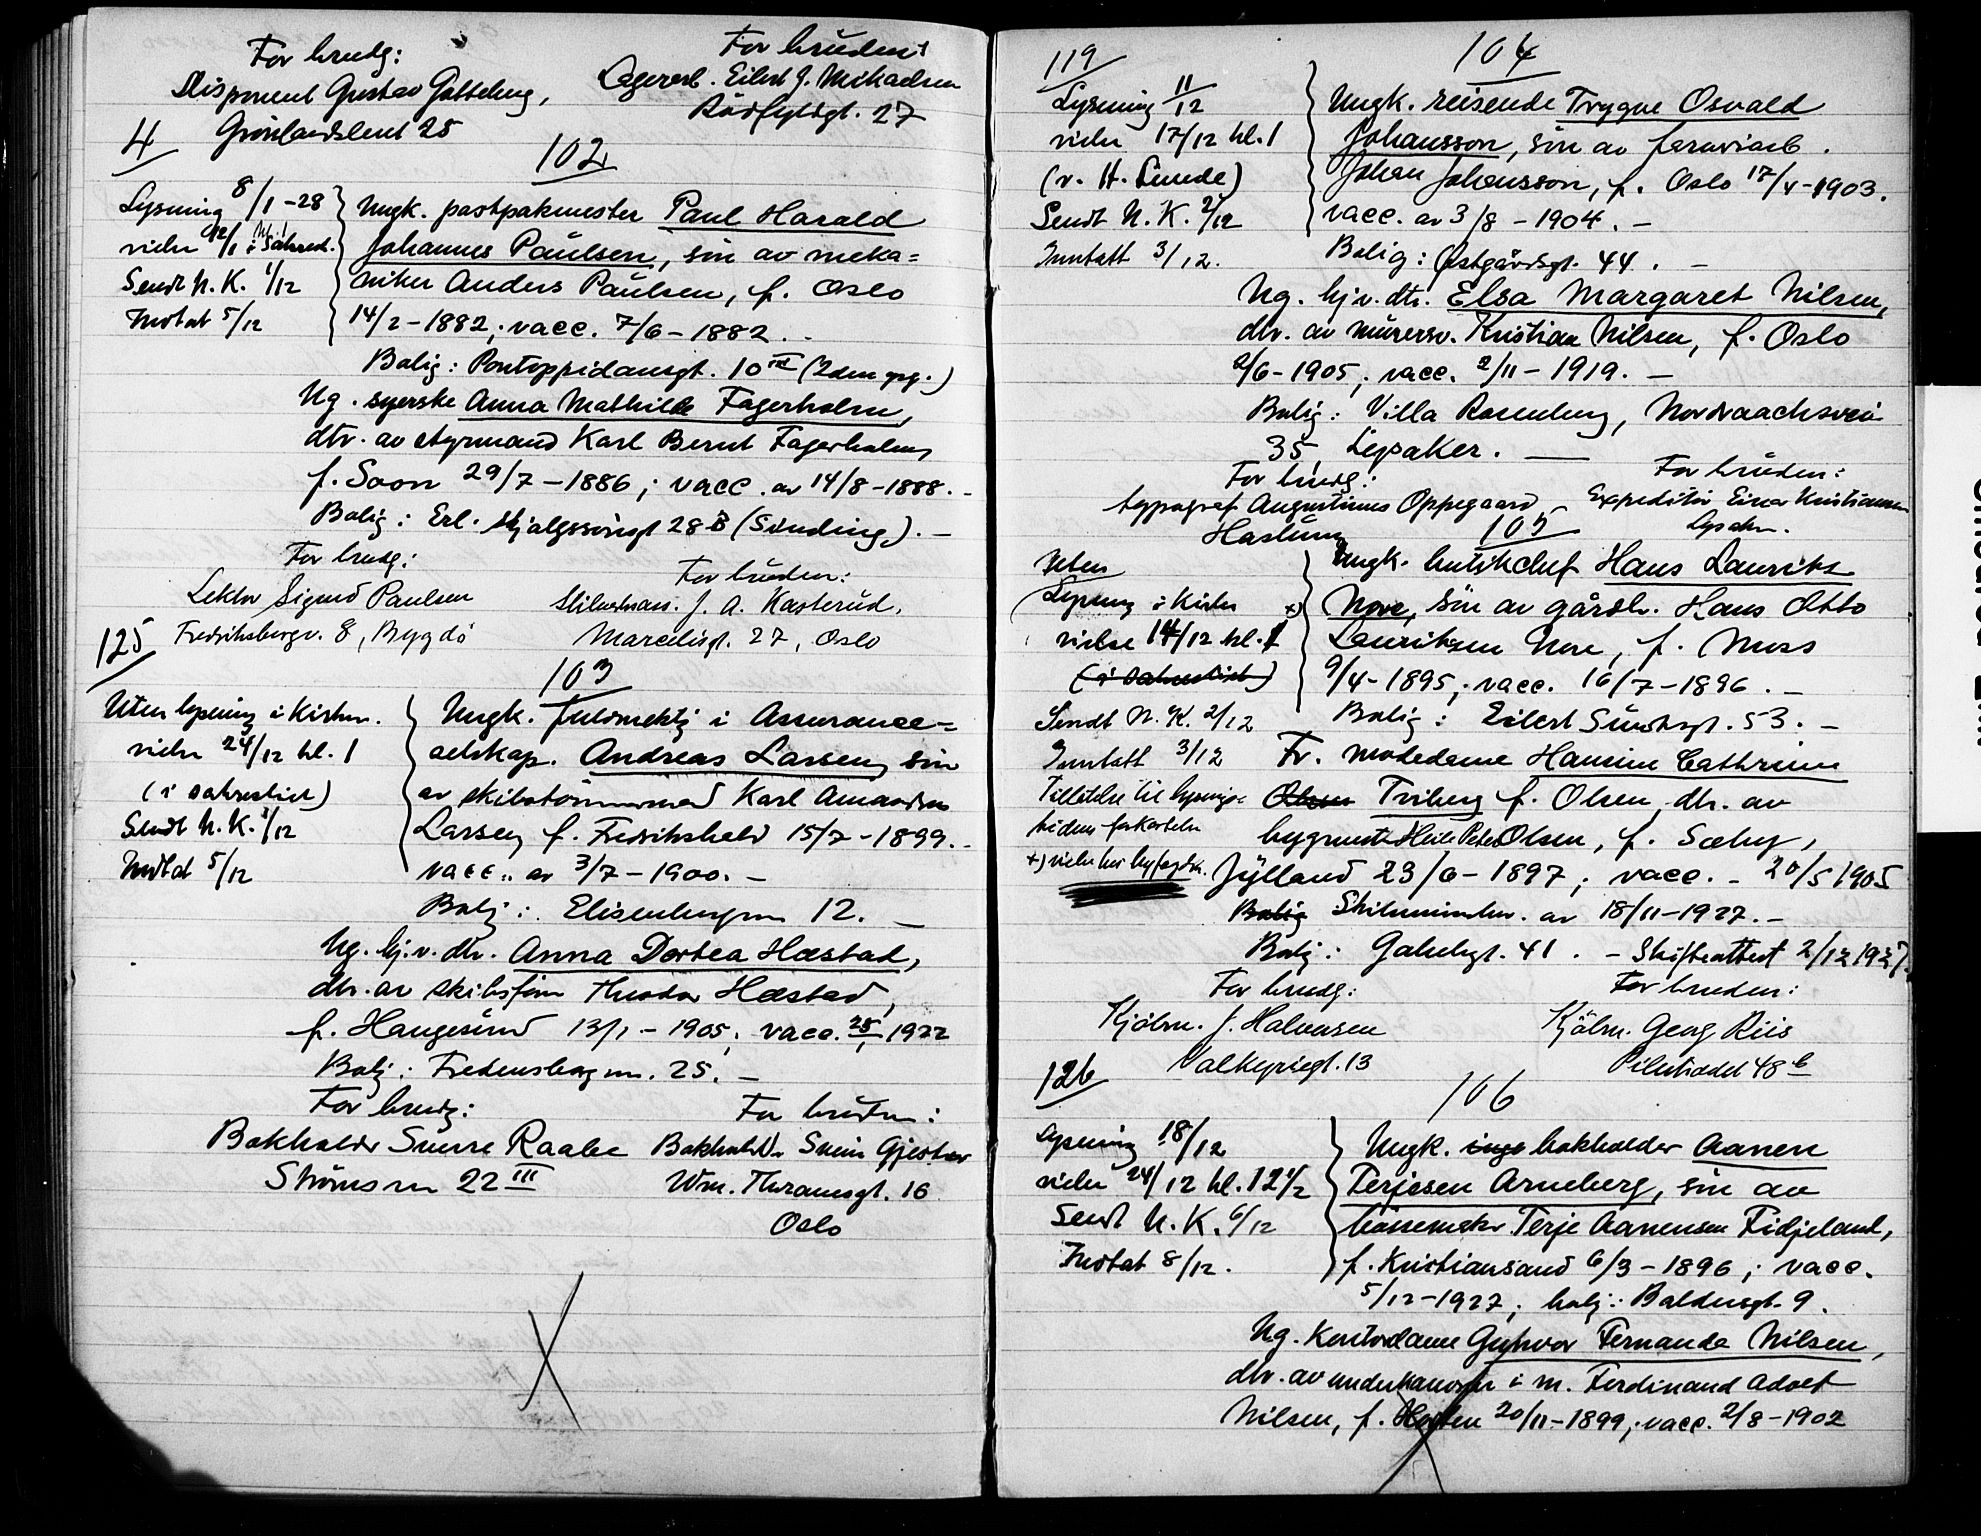 For brudg:
Disponent Gustav Gotteberg,
Grønlandsleret 25
For bruden:
Lagererb. Eilert J. Mikaelsen
Rådfyldgt. 27
4
102
Lysning 8/1-28
vielse 12/1
Sendt N. K. 1/12
Inntat 5/12
Ungk. postpakmester Paul Harald
Johannes Paulsen, søn av meka=
niker Anders Paulsen, f. Oslo
14/2-1882; vacc. 7/6-1882.
Bolig: Pontoppidansgt. 10 III (2den opg.)
Ug. syerske Anna Mathilde Fagerholm,
dtr. av styrmand Karl Bernt Fagerholm,
f. Soon 29/7-1886; vacc. av 14/8-1888.-
Bolig: Erl. Skjalgssønsgt 28 B (Sinding).-
For brudg:
Lektor Sigurd Paulsen
Fredriksborgv. 8, Bygdö
For bruden:
J. A. Kasterud,
Marcelisgt. 27, Oslo
125
103
Uten lysning i kirken.
vielse 24/12 kl. 1
(i sakrestiet)
Sendt N. K. 1/12
Inntat 5/12
Ungk. fuldmektig i Assurance=
selskap. Andreas Larsen, søn
av skibstömmermand Karl Amandus
Larsen, f. Fredrikshald 15/7-1899.-
vacc. av 3/7-1900.-
Bolig: Elisenbergvn 12.-
Ug. hj.v. dtr. Anna Dortea Hæstad,
dtr. av skibsförer Theodor Hæstad,
f. Haugesund 13/1-1905; vacc. 25/1 1922
Bolig: Fredensborgvn. 25.-
For brudg:
Bokholder Sverre Raabe
Strömsvn 22 III
For bruden:
Bokholder Svein Gjester
Wm. Thranesgt. 16
Oslo
119
104
Lysning 11/12
vielse 17/12 kl. 1
(v. H. Lunde)
Sendt N. K. 2/12
Inntatt 3/12.
Ungk. reisende Trygve Osvald
Johansson, søn av farveriarb.
Johan Johansson, f. Oslo 17/4-1903.
vacc. av 3/8-1904.-
Bolig: Østgårdsgt. 44.-
Ug. hj.v. dtr. Elsa Margaret Nilsen,
dtr. av murersv. Kristian Nilsen, f. Oslo
2/6-1905; vacc. 2/11-1919.-
Bolig: Villa Rosenberg, Nordraachsvei
35, Lysaker.
For brudg:
typograf Augustinus Oppegaard
Haslum
For bruden:
Expeditör Einar Kristiansen
Lysaker.
105
Uten
Lysning i kirken
vielse 14/12 kl. 1
(i sakrestiet)
Sendt N. K. 2/12
Inntatt 3/12
Tilladelse til
+) vielse hos byfogden.
Ungk. butikchef Hans Lauritz
+) Nore, søn av gårdbr. Hans Otto
Lauritzen Nore, f. Moss
9/4-1895; vacc. 16/7-1896.-
Bolig: Eilert Sundtsgt. 53.-
Fr. modedame Hansine Cathrine
Olsen Triberg f. Olsen, dtr. av
bygmester Peter Olsen, f. Sæby,
Jylland 23/6-1897; vacc.- 20/5 1905
Bolig Skilsmissebev. av 18/11-1927.-
Bolig: Gabelsgt. 41.- Skifteattest 2/12 1927.
For brudg:
Kjöbm. J. Halvorsen
Valkyriegt. 13
For bruden:
Kjöbm. Georg Riis
Pilestrædet 48 b
126
106
Lysning 18/12
vielse 24/12 kl. 12 1/2
Sendt N. K. 6/12
Inntat 8/12.
Ungk. inge bokholder Aanen
Terjesen Arneberg, søn av
bössemaker Terje Aanensen Fidjeland,
f. Kristiansand 6/3-1896; vacc.
5/12-1927; bolig: Baldersgt. 9.
Ug. Kontordame Gunvor Fernanda Nilsen,
dtr. av underkanoner i m. Ferdinand Adolf
Nilsen, f. Horten 20/11-1899; vacc. 2/8-1902